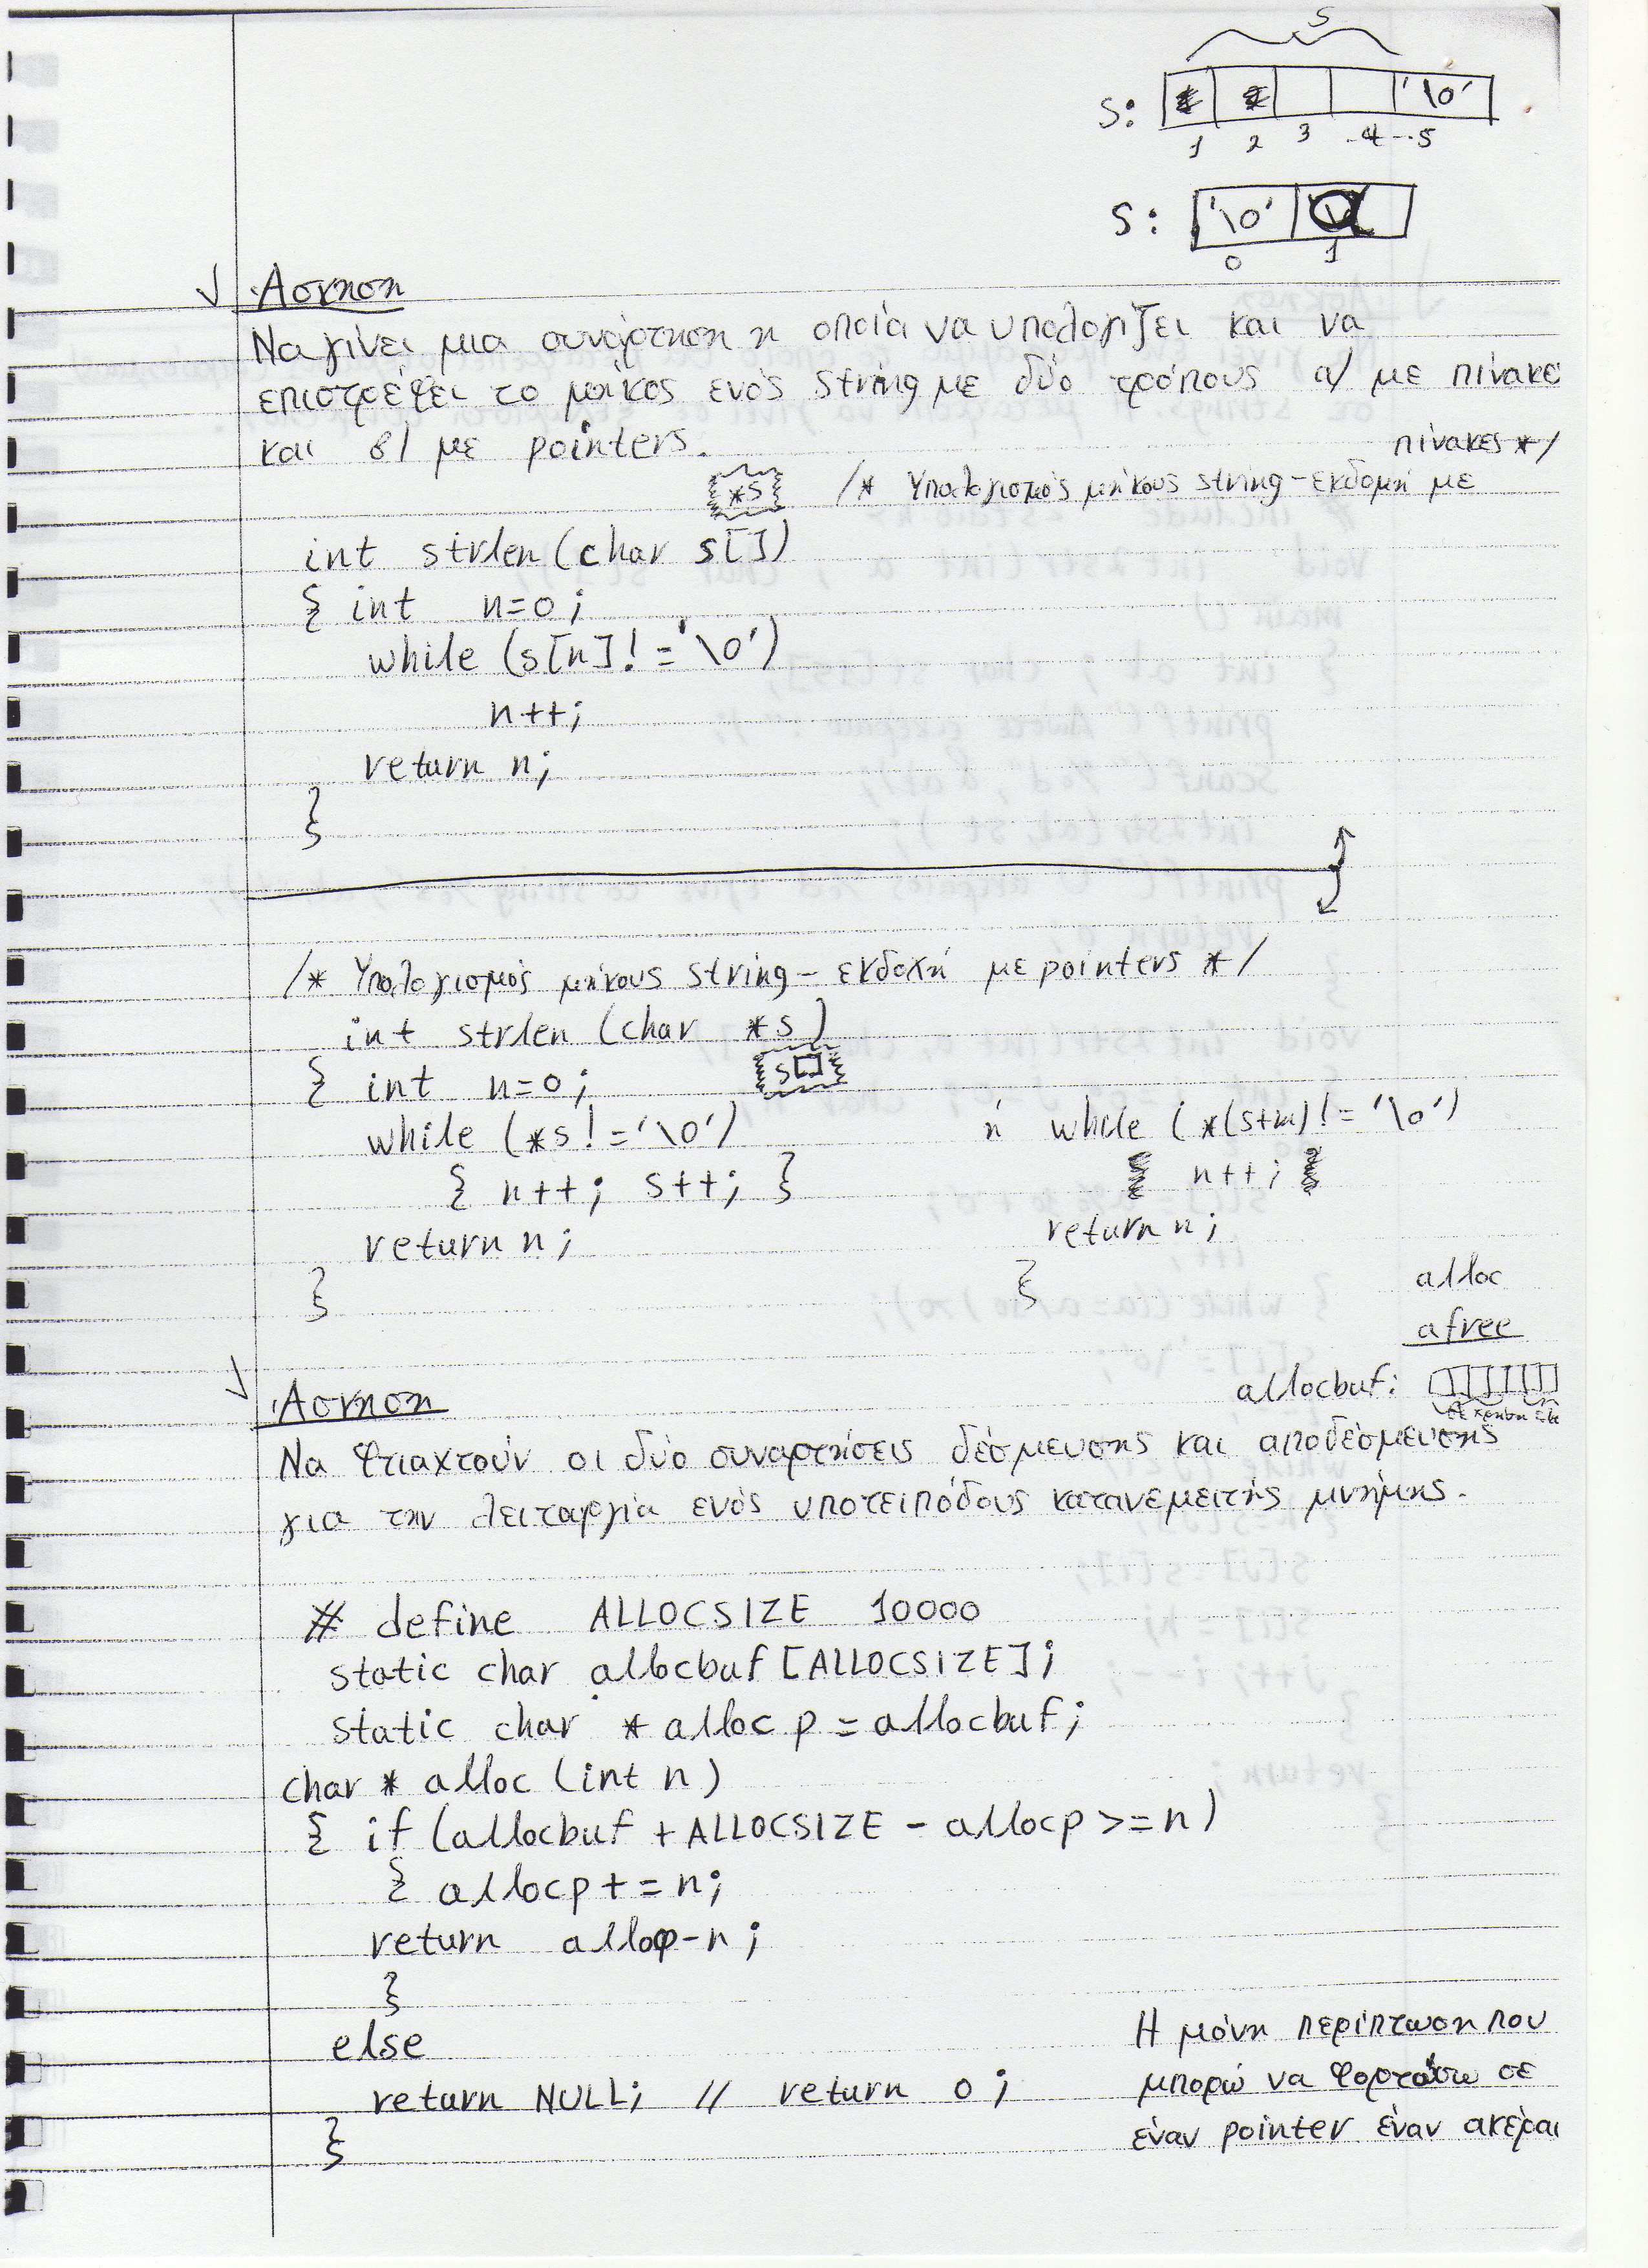 S
S: '\0'
1 2 3 4 5
S: '\0'
0 1
Άσκηση
Να γίνει μια συνάρτηση η οποία να υπολογίζει και να
επιστρέφει το μήκος ενός string με δύο τρόπους α/ με πίνακε
και β/ με pointers.
πίνακες */
*s /* Υπολογισμός μήκους string - εκδομή με
int strlen (char s[])
{ int n=0;
while (s[n]!='\0')
n++;
return n;
}
/* Υπολογισμός μήκους string - εκδοχή με pointers */
int strlen (char *s)
s[]
{ int n=0;
while (*s!='\0') ή while (*(s+n)!='\0')
{ n++; s++; } n++;
return n; return n;
} }
alloc
afree
allocbuf:
Άσκηση
Να φτιαχτούν οι δύο συναρτήσεις δέσμευσης και αποδέσμευσης
για την λειτουργία ενός υποτειπόδους κατανεμειτής μνήμης.
# define ALLOCSIZE 10000
static char allocbuf [ALLOCSIZE];
static char *allocp = allocbuf;
char * alloc (int n)
{ if (allocbuf + ALLOCSIZE - allocp >= n)
{ allocp += n;
return allocp-n;
}
else
return NULL; // return 0;
}
Η μόνη περίπτωση που
μπορώ να φορτώσω σε
έναν pointer έναν ακέραι